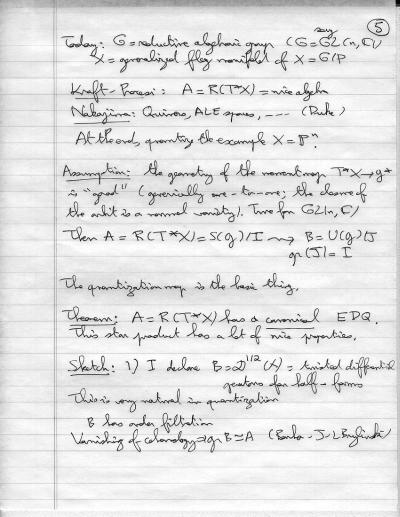 5
Today: G = reductive algebraic group (G = say GL(n, C))
X = generalized flag manifold of X = G/P
Kraft-Procesi: A = R(T*X) = nice algebra
Nakajima: Quivers, ALE spaces, --- (Duke)
At the end, quantize the example X = Pⁿ.
Assumption: the geometry of the moment map T*X → g*
is "good" (generically one-to-one; the closure of
the orbit is a normal variety). True for GL(n, C)
Then A = R(T*X) = S(g)/I ⇝ B = U(g)/J
gr(J) = I
The quantization map is the basic thing.
Theorem: A = R(T*X) has a canonical EDQ.
This star product has a lot of nice properties.
Sketch: 1) I declare B = D^{1/2}(X) = twisted differential
operators for half-forms
This is very natural in quantization
B has order filtration
Vanishing of cohomology ⇒ gr B = A (Borho - J-L Brylinski)